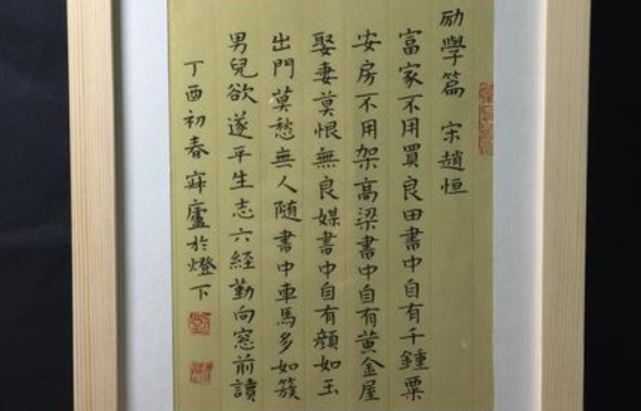 励学篇 宋趙恒
富家不用買良田書中自有千鍾粟
安房不用架高梁書中自有黃金屋
娶妻莫恨無良媒書中自有顏如玉
出門莫愁無人随書中車馬多如簇
男兒欲遂平生志六經勤向窓前讀
丁酉初春寐廬於燈下